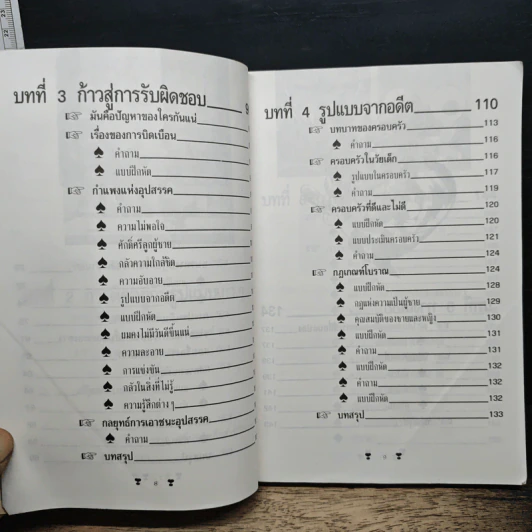 บทที่ 3 ก้าวสู่การรับผิดชอบ 9
มันคือปัญหาของใครกันแน่
เรื่องของการบิดเบือน
คำถาม
แบบฝึกหัด
กำแพงแห่งอุปสรรค
คำถาม
ความไม่พอใจ
ศักดิ์ศรีลูกผู้ชาย
กลัวความใกล้ชิด
ความอับอาย
รูปแบบจากอดีต
แบบฝึกหัด
ผมคงไม่มีวันดีขึ้นแน่
ความละอาย
การแข่งขัน
กลัวในสิ่งที่ไม่รู้
ความรู้สึกต่างๆ
กลยุทธ์การเอาชนะอุปสรรค
คำถาม
บทสรุป
บทที่ 4 รูปแบบจากอดีต 110
บทบาทของครอบครัว 113
คำถาม 116
ครอบครัวในวัยเด็ก 116
รูปแบบในครอบครัว 117
คำถาม 119
ครอบครัวที่ดีและไม่ดี 120
แบบฝึกหัด 120
แบบประเมินครอบครัว 121
คำถาม 124
กฎเกณฑ์โบราณ 124
แบบฝึกหัด 128
กฎแห่งความเป็นผู้ชาย 129
คุณสมบัติของชายและหญิง 130
แบบฝึกหัด 131
คำถาม 131
แบบฝึกหัด 132
คำถาม 132
แบบฝึกหัด 132
บทสรุป 133